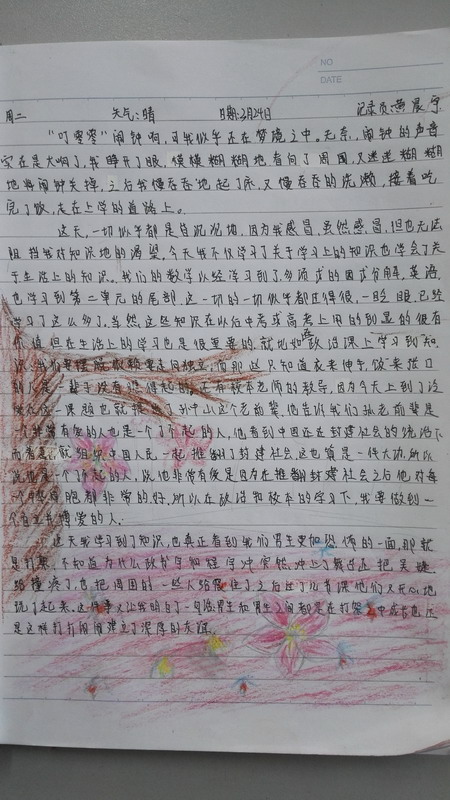 NO
DATE
周二 天气:晴 日期:2月24日 记录员:燕晨宇
“叮零零”闹钟响,可我似乎还在梦境之中。无奈,闹钟的声音
实在是太响了,我睁开了眼,模模糊糊地看向了周围,又迷迷糊糊
地将闹钟关掉,之后我慢吞吞地起了床,又慢吞吞的洗漱,接着吃
完了饭,走在上学的道路上。
这天,一切似乎都是昏沉沉地,因为我感冒,虽然感冒,但也无法
阻挡我对知识地的渴望,今天我不仅学习了关于学习上的知识也学会了关
于生活上的知识。我们的数学以经学习到了多项式的因式分解,英语
也学习到第二单元的尾部,这一切的一切似乎都还得很,一眨眼,已经
学习了这么多了,当然,这些知识在以后中考或高考上用的到显的很有
价值,但在生活上的学习也是很重要的,就比如政治课上学习到知
识,我们要摆脱依赖要走向独立,而那这只知道衣来伸手,饭来张口
别人是一辈子没有
的教导,因为今天上到了
一课题也就
孙中山这个老前辈,他告诉我们孙老前辈是
一个非常有爱的人也是一个了不起的人,他看到中国还在封建社会的统治下
而着急,就组织中国人民一起推翻了封建社会,这也算是一件大功,所以
说他是一个了不起的人,说他非常有爱是因为在推翻封建社会之后他对每
一个
同胞都非常的好,所以在政治和校本的学习下,我要做到一
个自立和博爱的人。
这天我学习到了知识,也真正看到我们男生更加恐怖的一面,那就
是打架,不知道为什么
突然冲上了
把吴
给撞疼了,也把周围的一些人给
住了,之后过了几节课他们又开心地
玩了起来,这件事又让我明白了一句话男生和男生之间都是在打架之中成长也还
是这样打打闹闹建立了深厚的友谊。